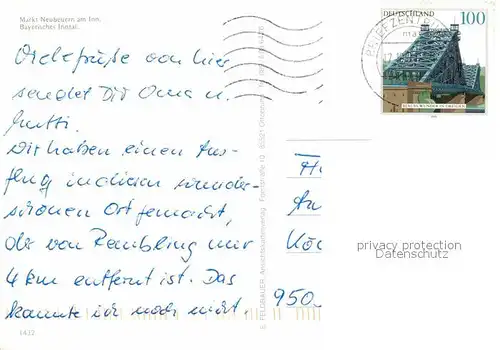 Markt Neubeuern am Inn.
Bayerisches Inntal.
Viele Grüße von hier
sendet Dir Oma u.
Mutti.
Wir haben einen Aus-
flug in diesen wunder-
schönen Ort gemacht,
der von Raubling nur
4 km entfernt ist. Das
kannte ich noch nicht.
1432
DEUTSCHLAND
100
BLAUES WUNDER DRESDEN
BRIEFZENTRUM
E. FELDBAUER, Ansichtskartenverlag
950
privacy protection
Datenschutz